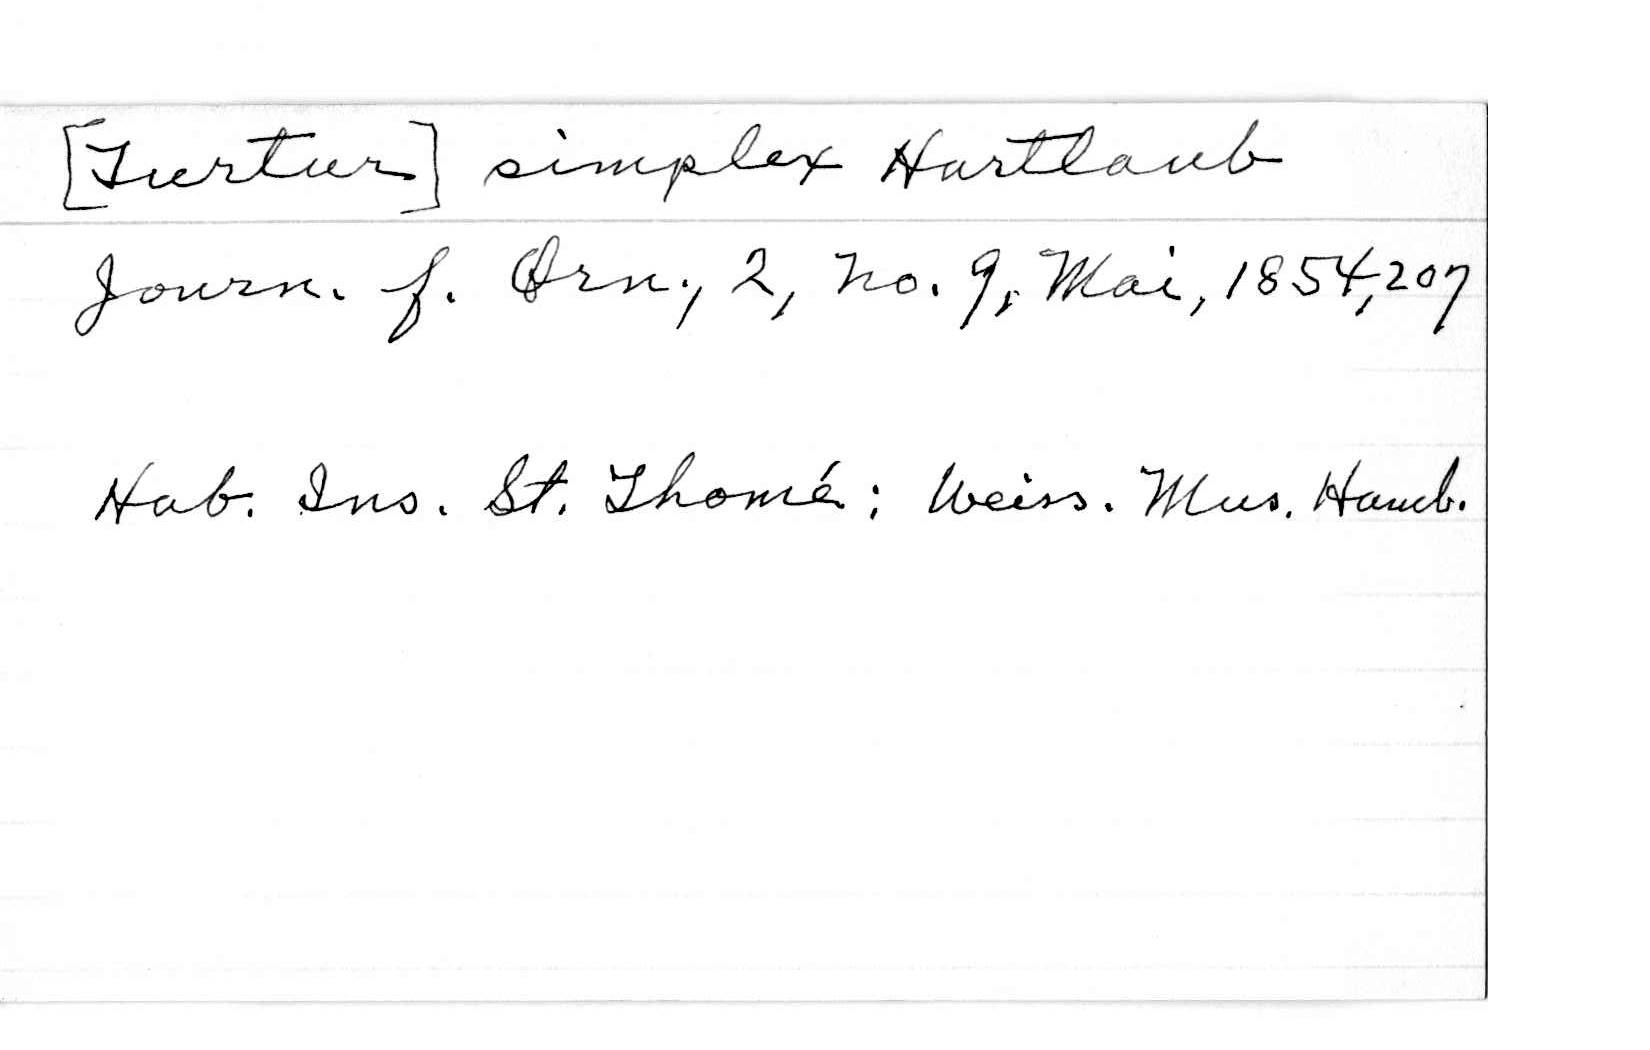 [Turtur] simplex Hartlaub
Journ. f. Orn., 2, no. 9, Mai, 1854, 207
Hab. Ins. St. Thomé; Weiss. Mus. Hamb.